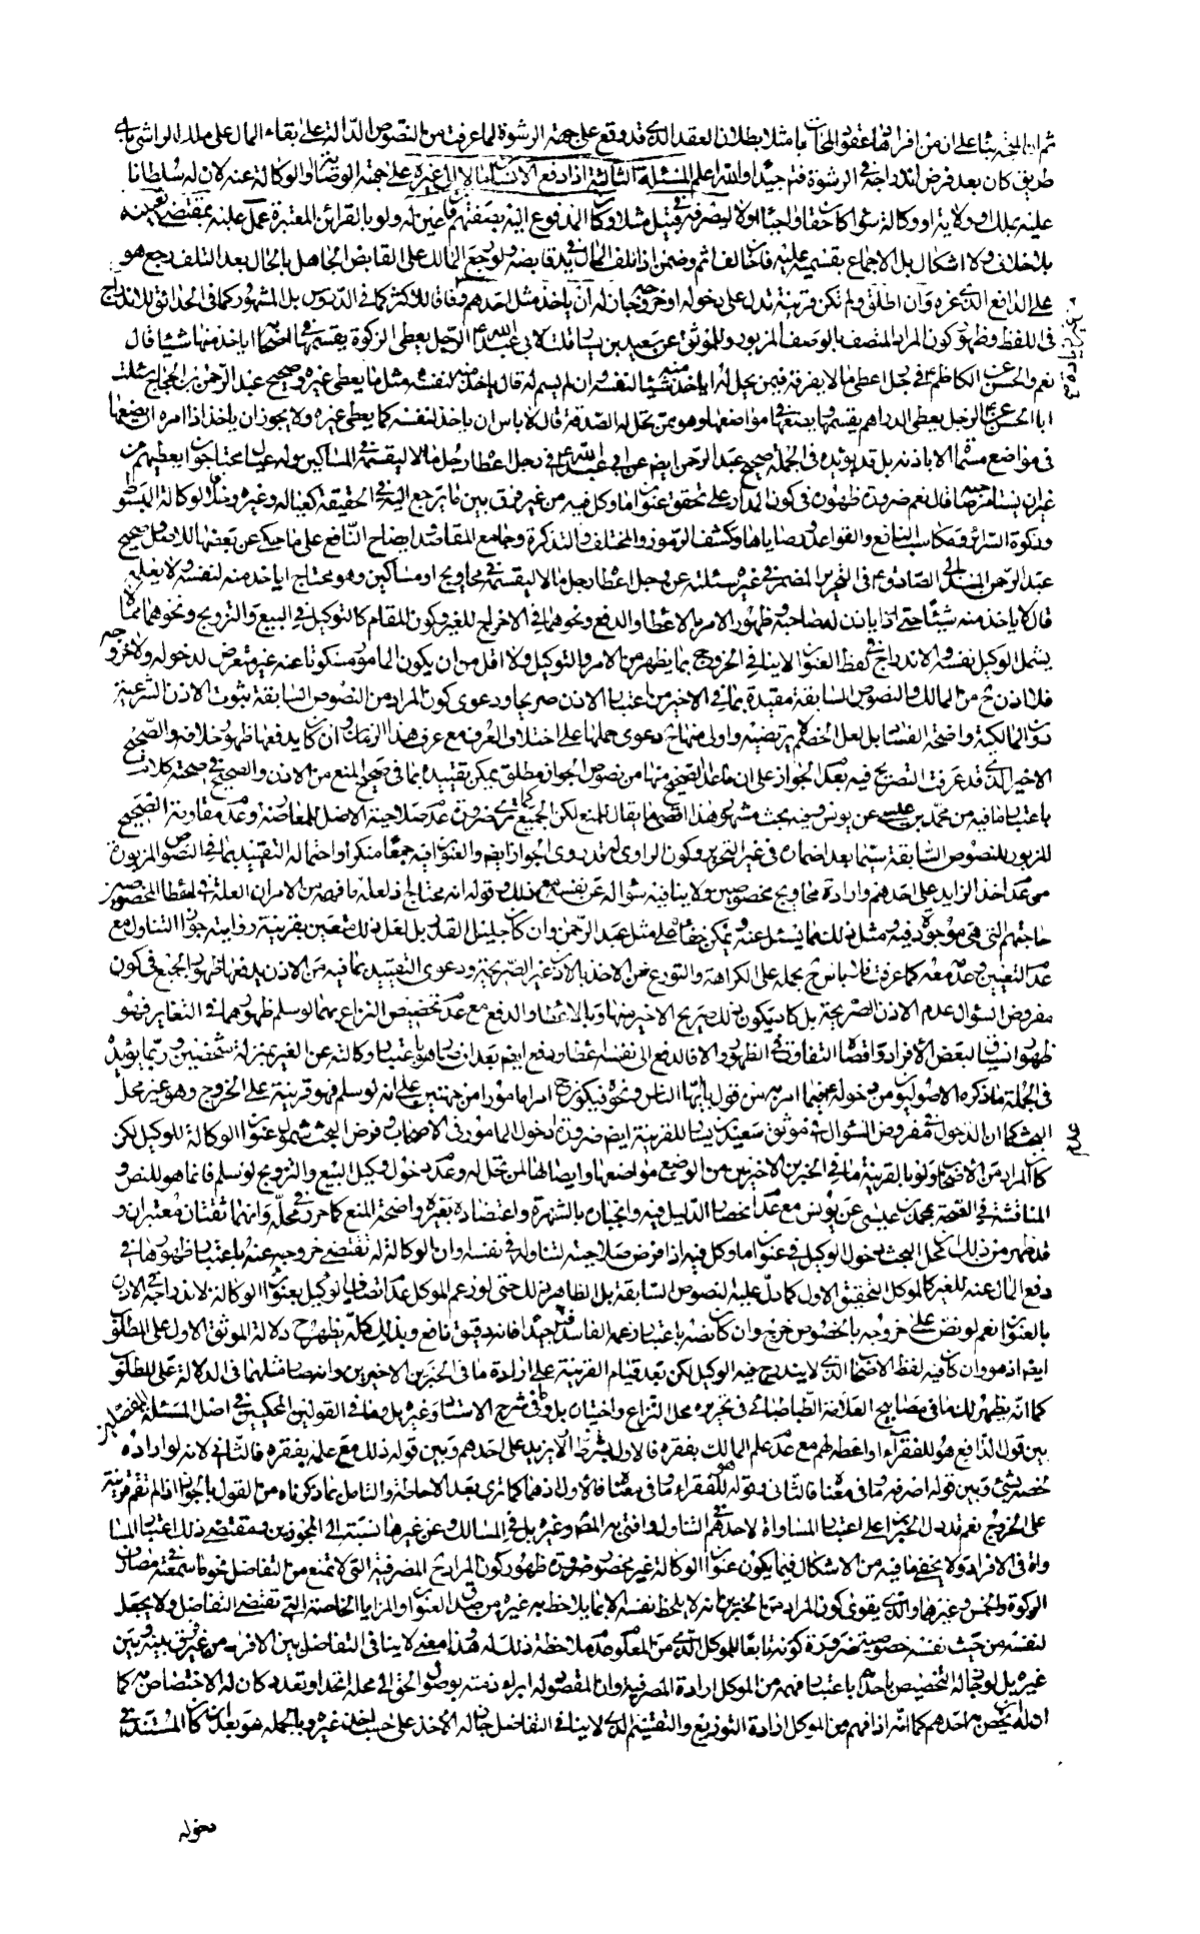 ثم ان المتجه بناء على ان من افرادها عقود المحابات بطلان العقد الذى قد وقع على جهة الرشوة لما عرفت من النصوص الدالة على بقاء المال على ملك الراشى باى
طريق كان بعد فرض اندراجه فى الرشوة فتم جيدا والله اعلم المسئلة الثالثة اذا دفع الانسان مالا الى غيره على جهة الوصاية او الوكالة عنه لان له سلطانا
عليه بملك او ولاية او وكالة سواء كان حقا واجبا اولا ليصرفه فى قبيل مثلا وكان المدفوع اليه بصفتهم فان عين له ولو بالقرائن المعتبرة عمل عليه بمقتضى تعيينه
بلا خلاف ولا اشكال بل الاجماع بقسميه عليه فان خالف اثم وضمن اذا تلف المال فى يد قابضه ولو رجع المالك على القابض الجاهل بالحال بعد التلف رجع هو
على الدافع الذى غره وان اطلق ولم تكن قرينة تدل على دخوله او خروجه جاز له ان ياخذ مثل احدهم وفاقا للاكثر كما فى الدروس بل المشهور كما فى الحدائق للاندراج
فى اللفظ وظهور كون المراد المتصف بالوصف المزبور وللموثق عن سعيد بن يسار قلت لابى عبد الله ع الرجل يعطى الزكوة يقسمها فى اصحابه اياخذ منها شيئا قال
نعم والحسن عن الكاظم ع فى رجل اعطى مالا يفرقه فيمن يحل له اياخذ منه شيئا لنفسه وان لم يسم له قال ياخذ منه لنفسه مثل ما يعطى غيره وصحيح عبد الرحمن بن الحجاج سئلت
ابا الحسن ع عن الرجل يعطى الدراهم يقسمها ويضعها فى مواضعها وهو ممن تحل له الصدقة قال لا باس ان ياخذ لنفسه كما يعطى غيره ولا يجوز ان ياخذ اذا امره ان يضعها
فى مواضع مسماة الا باذنه بل قد يؤيده فى الجملة صحيح عبد الرحمن ايضا عن ابى عبد الله ع فى رجل اعطاه رجل مالا ليقسمه فى المساكين وله عيال محتاجون ايعطيهم من
غير ان يستامر صاحبه قال نعم ضرورة ظهوره فى كون المدار على تحقق عنوان ما وكل فيه من غير فرق بين ما يرجع اليه فى الحقيقة كعياله وغيره وخلافا لوكالة المبسوط
وزكوة السرائر ومكاسب النافع والقواعد ووصاياها وكشف الرموز والمختلف والتذكرة وجامع المقاصد وايضاح النافع على ما حكى عن بعضها للاصل وصحيح
عبد الرحمن المسند الى الصادق ع فى التحرير المضمر فى غيره سئلته عن رجل اعطاه رجل مالا ليقسمه فى محاويج او مساكين وهو محتاج اياخذ منه لنفسه ولا يعلمه
قال لا ياخذ منه شيئا حتى ياذن له صاحبه وظهور الامر بالاعطاء والدفع ونحوهما فى الاخراج للغير وكون المقام كالتوكيل فى البيع والتزويج ونحوهما مما لا
يشمل الوكيل نفسه والاندراج فى لفظ العنوان لا ينافى الخروج بما يظهر من الامر والتوكيل ولا اقل من ان يكون المامور مسكوتا عنه غير متعرض لدخوله ولا خروجه
فلا اذن ح من المالك والنصوص السابقة مقيدة بما فى الاخير من اعتبار الاذن صريحا ودعوى كون المراد من النصوص السابقة ثبوت الاذن الشرعية
دون المالكية واضحة الفساد بل لعل الخصم لا يرتضيه واولى منها ح دعوى حملها على اختلاف العرف مع عرف هذا الزمان وان كان يدفعها ظهور خلافه والصحيح
الاخير الذى قد عرفت التصريح فيه بعدم الجواز على ان ما عدا الصحيح منها من نصوص الجواز مطلق يمكن تقييده بما فى صحيح المنع من الاذن والصحيح فى صحته كلام
باعتبار ما فيه من محمد بن عيسى عن يونس وفيه بحث مشهور هذا اقصى ما يقال للمنع لكن الجميع كما ترى ضرورة عدم صلاحية الاصل للمعارضة وعدم مقاومة الصحيح
المزبور للنصوص السابقة سيما بعد اضماره فى غير التحرير وكون الراوى له قد روى الجواز ايضا والعنوان فيه جمعا منكرا واحتماله التقييد بما فى النصوص المزبورة
من عدم اخذ الزايد على احدهم وارادة محاويج مخصوصين ولا ينافيه سؤاله عن نفسه مع ذلك وقوله انه محتاج اذ لعله لما فهم من الامر ان العلة فى اعطاء المخصوصين
حاجتهم التى هى موجودة فيه ومثل ذلك مما يسئل عنه ويمكن خفائه على مثل عبد الرحمن وان كان جليل القدر بل لعل ذلك متعين بقرينة روايته جواز التناول مع
عدم التعيين وعدمه معه كما عرفت فلا باس ح بحمله على الكراهة والتورع عن الاخذ بالاذن غير الصريحة ودعوى التقييد بما فيه من الاذن يدفعها ظهور الجميع فى كون
مفروض السؤال عدم الاذن الصريحة بل كاد يكون ذلك صريح الاخير منها وبالاعطاء والدفع مع عدم تخصيص النزاع بهما لو سلم ظهورهما فى التغاير فهو
ظهور انسياق لبعض الافراد واقصاه التفاوت فى الظهور والا فالدفع الى نفسه اعطاء ودفع ايضا بعد ان صار هو باعتبار وكالته عن الغير بمنزلة شخصين وربما يؤيده
فى الجملة ما ذكره الاصوليون من دخوله فيما امر به من قول يا ايها الناس ونحوه فيكون ح امرا مامورا من جهتين على انه لو سلم فهو قرينة على الخروج وهو غير محل
البحث كما ان الدخول فى مفروض السؤال فى موثق سعيد بن يسار للقرينة ايضا ضرورة دخول المامور فى الاصحاب وفرض البحث شمول عنوان الوكالة للوكيل لكن
كان المراد من الاصحاب ولو بالقرينة ما فى الخبرين الاخيرين من الوضع مواضعها وايصالها لمن تحل له وعدم دخول وكيل البيع والتزويج لو سلم فانما هو للنص و
المناقشة فى الصحة بمحمد بن عيسى عن يونس مع عدم انحصار الدليل فيه وانجباره بالشهرة واعتضاده بغيره واضحة المنع كما حرر فى محله وانهما ثقتان معتبران و
قد ظهر من ذلك ان محل البحث دخول الوكيل فى عنوان ما وكل فيه اذا فرض صلاحيته لتناوله فى نفسه وان الوكالة له تقتضى خروجه عنه باعتبار ظهورها فى
دفع المال عنه للغير كالموكل والتحقيق الاول كما دل عليه النصوص السابقة بل الظاهر ذلك حتى لو زعم الموكل عدم اتصاف الوكيل بعنوان الوكالة لاندراجه فى الاذن
بالعنوان نعم لو نص على خروجه بالخصوص خرج وان كان نصه باعتبار زعمه الفاسد فتدبر جيدا فانه دقيق نافع وبذلك كله يظهر ح دلالة الموثق الاول على المطلوب
ايضا اذ هو وان كان فيه لفظ الاصحاب الذى لا يندرج فيه الوكيل لكن بعد قيام القرينة على ارادة ما فى الخبرين الاخيرين وانه صار مثلهما فى الدلالة على المطلوب
كما انه يظهر لك ما فى مصابيح العلامة الطباطبائى فى تحريره محل النزاع واختياره بل وفى شرح الاستاد وغيره بل وما فى القولين المحكيين فى اصل المسئلة المفصلين
بين قول الدافع هو للفقراء او اعطه لهم مع عدم علم المالك بفقره فالاول بشرط ان لا يزيد على احدهم وبين قوله ذلك مع علمه بفقره فالثانى لانه لو اراده
لخصه بشئ وبين قوله اصرفه وما فى معناه فالثانى وقوله هو للفقراء وما فى معناه فالاول اذ هما كما ترى بعد الاحاطة والتامل بما ذكرناه من القول بالجواز اذا لم تقم قرينة
على الخروج نعم قد دل الخبران على اعتبار المساواة لاحدهم فى التناول وافتى به المصنف وغيره بل فى المسالك وعن غيرها نسبته الى المجوزين ومقتضى ذلك اعتبار المسا
واة فى الافراد ولا يخفى ما فيه من الاشكال فيما يكون عنوان الوكالة غير محصور ضرورة ظهور كون المراد ح المصرفية التى لا تمنع من التفاضل نحو ما سمعته فى مصارف
الزكوة والخمس وغيرهما والذى يقوى كون المراد من الخبرين انه لا يلحظ نفسه الا بما يلاحظ به غيره من صدق العنوان والمزايا الخاصة التى تقتضى التفاضل ولا يجعل
لنفسه من حيث نفسه خصوصية ضرورة كونه تابعا للموكل الذى من المعلوم عدم ملاحظته ذلك له وهذا معنى لا ينافى التفاضل بين الافراد من غير فرق بينه وبين
غيره بل لو جاز له التخصيص باحدهم باعتبار فهمه من الموكل ارادة المصرفية وان المقصود له ابراء ذمته بوصول الحق الى محله اتحد او تعدد كان له الاختصاص به كما
ان له ان يخص به احدهم كما انه اذا فهم من الموكل ارادة التوزيع والتقسيم الذى لا ينافى التفاضل جاز له الاخذ على حسب اخذ غيره وبالجملة هو بعد ان كان المستند فى
دخوله